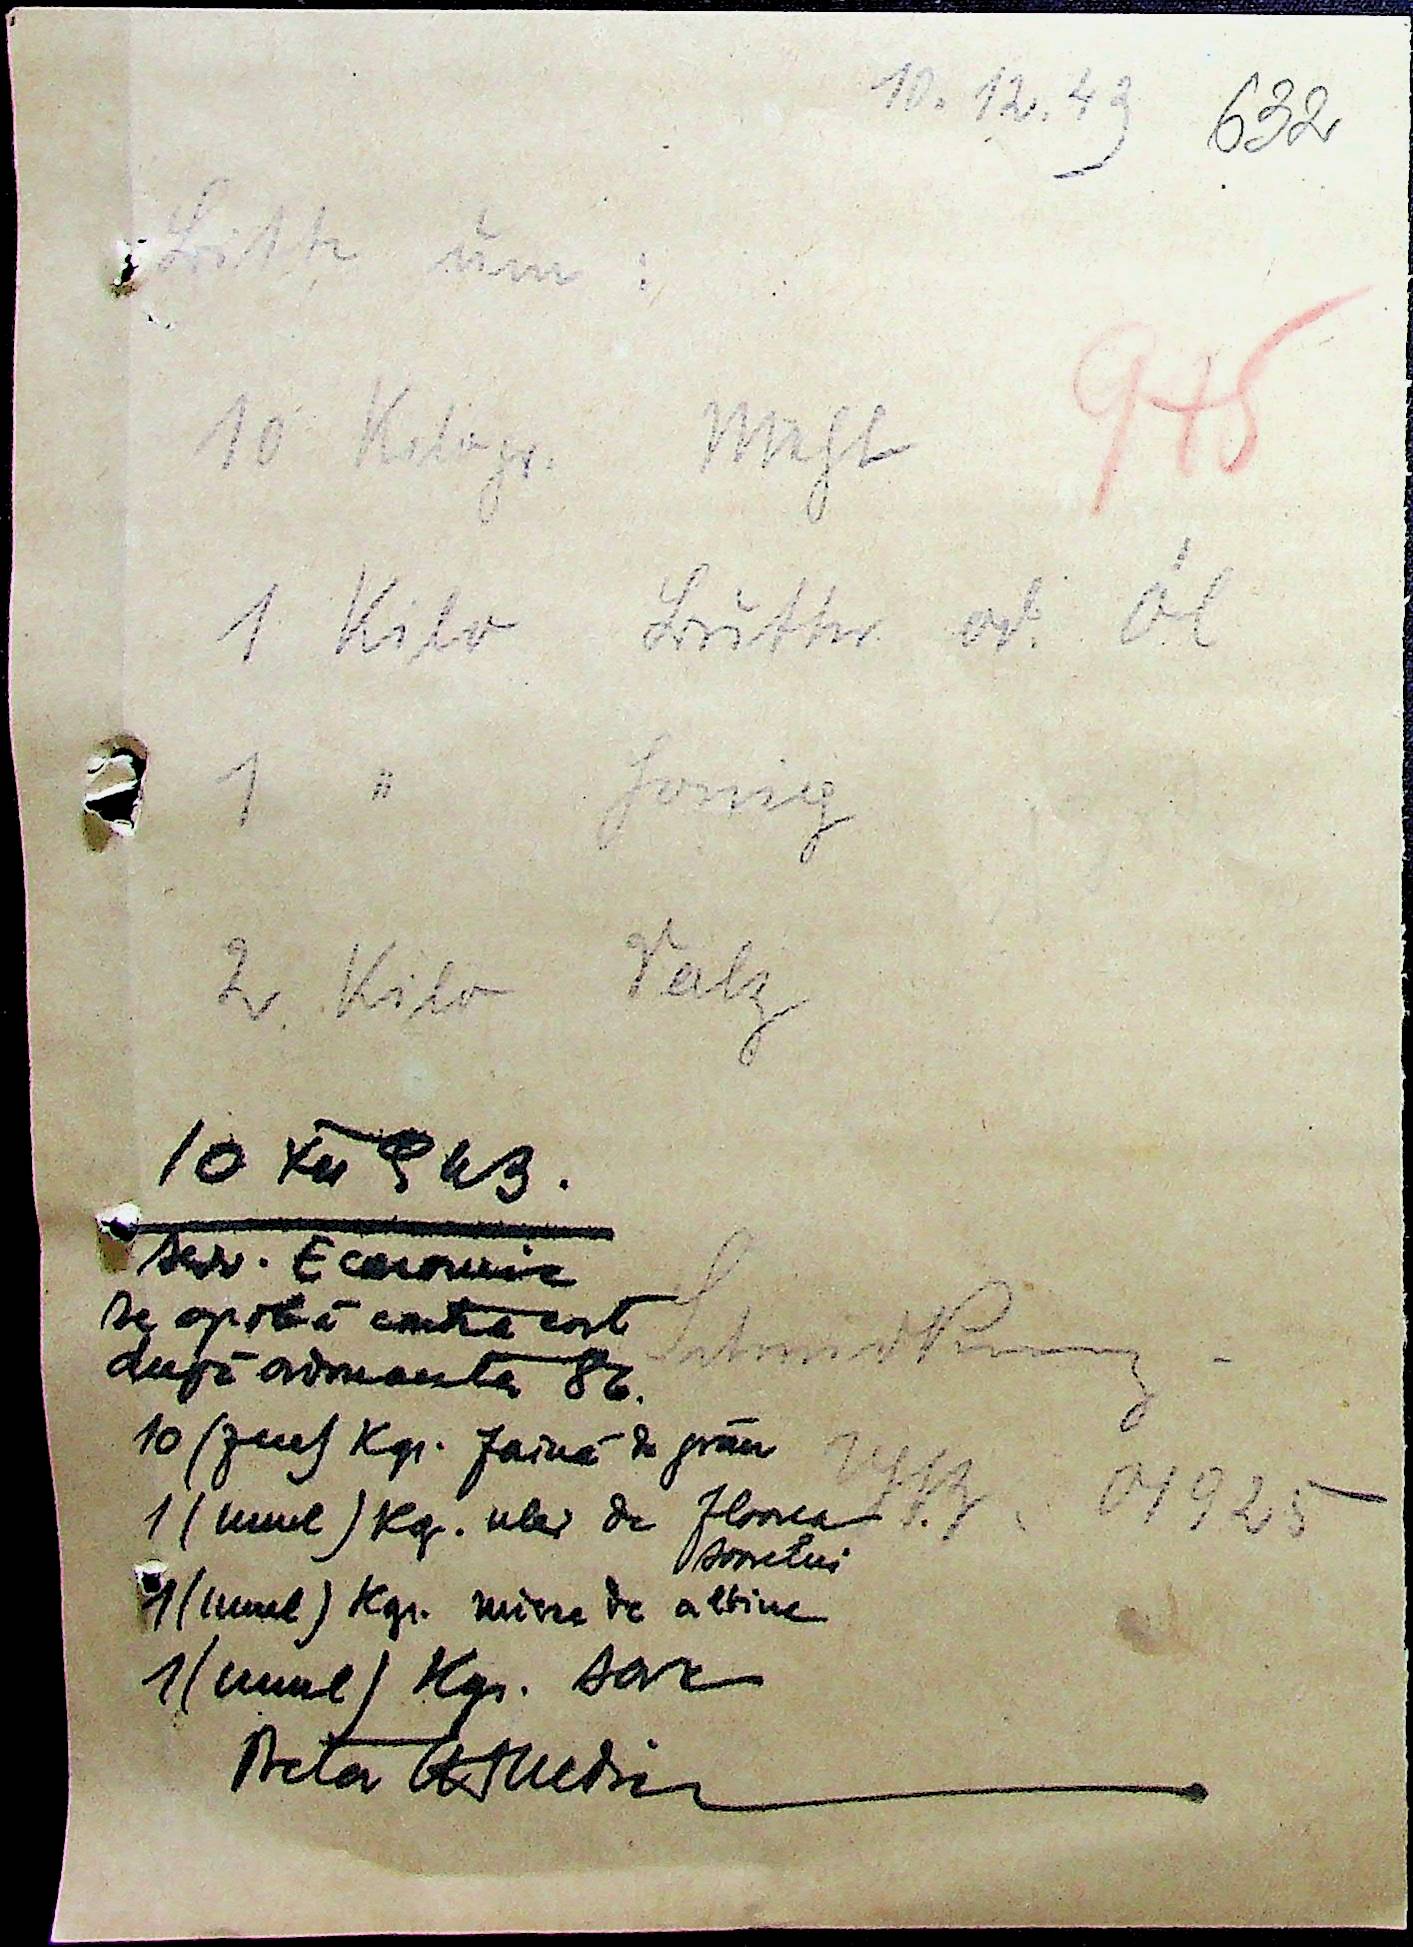 10. 12. 43 632
Bitte um :
975
10 Kilogr. Mehl
1 Kilo Butter od. Öl
1 " Honig
2 Kilo Salz
10 XII 943.
Serv. Economic
Se aprobă contra cost
după ordonanța 86.
10 (zece) Kgr. faină de grâu
1 (unul) Kgr. ulei de floarea
soarelui
1 (unul) Kgr. miere de albine
1 (unul) Kgr. sare
01925